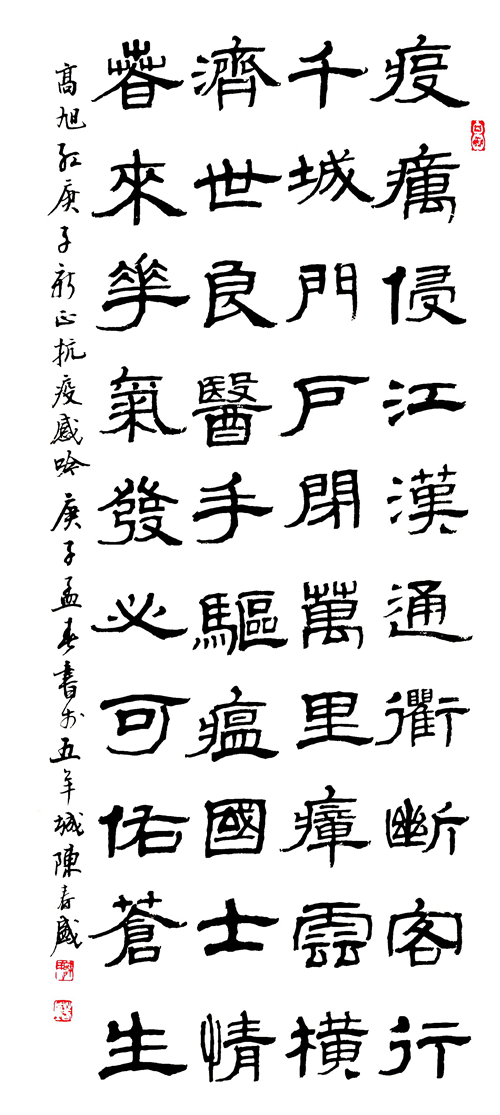 疫癘侵江漢通衢斷客行
千城門戶閉萬里瘴雲橫
濟世良醫手驅瘟國士情
萅來華氣發必可佑蒼生
高旭红庚子新正抗疫感吟 庚子孟春書於五羊城陳春盛